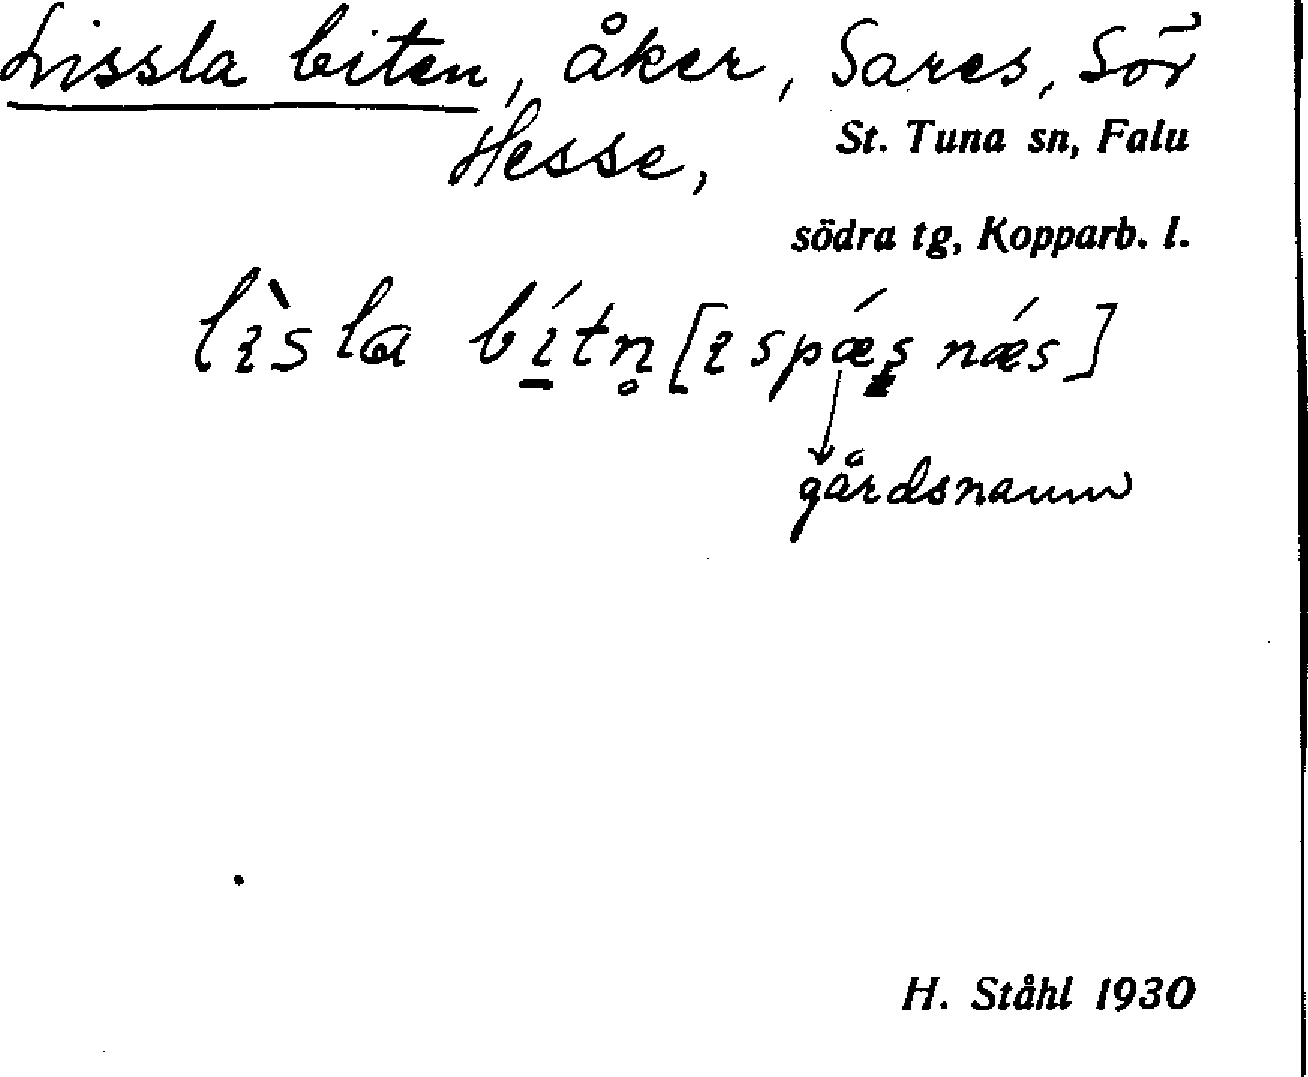 Lissla biten, åker, Sares, Sör
Hesse,
St. Tuna sn, Falu
södra tg, Kopparb. l.
lìsla bítn̥ [ı spǽṣ nǽs]
gårdsnamn
H. Ståhl 1930